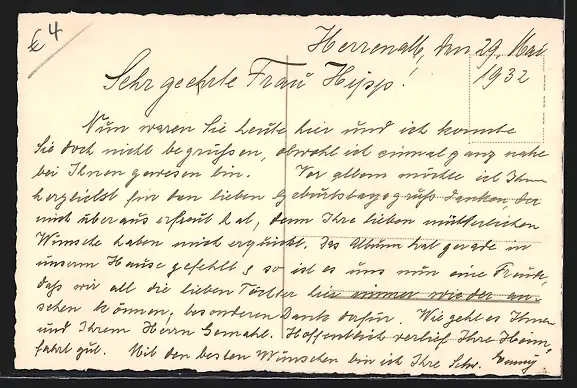 €4
Herrenalb, den 29. Mai
1932
Sehr geehrte Frau Hipp!
Nun waren Sie heute hier und ich konnte
Sie doch nicht begrüßen, obwohl ich einmal ganz nahe
bei Ihnen gewesen bin. Vor allem möchte ich Ihnen
herzlichst für den lieben Geburtstagsgruß danken, der
mich überaus erfreut hat, denn Ihre lieben mütterlichen
Wünsche haben mich erquickt. Das Album hat gerade in
unserm Hause gefehlt, so ist es uns nun eine Freude,
daß wir all die lieben Töchter hie immer wieder an-
sehen können, besonderen Dank dafür. Wie geht es Ihnen
und Ihrem Herrn Gemahl. Hoffentlich verlief Ihre Heim-
fahrt gut. Mit den besten Wünschen bin ich Ihre Schw.